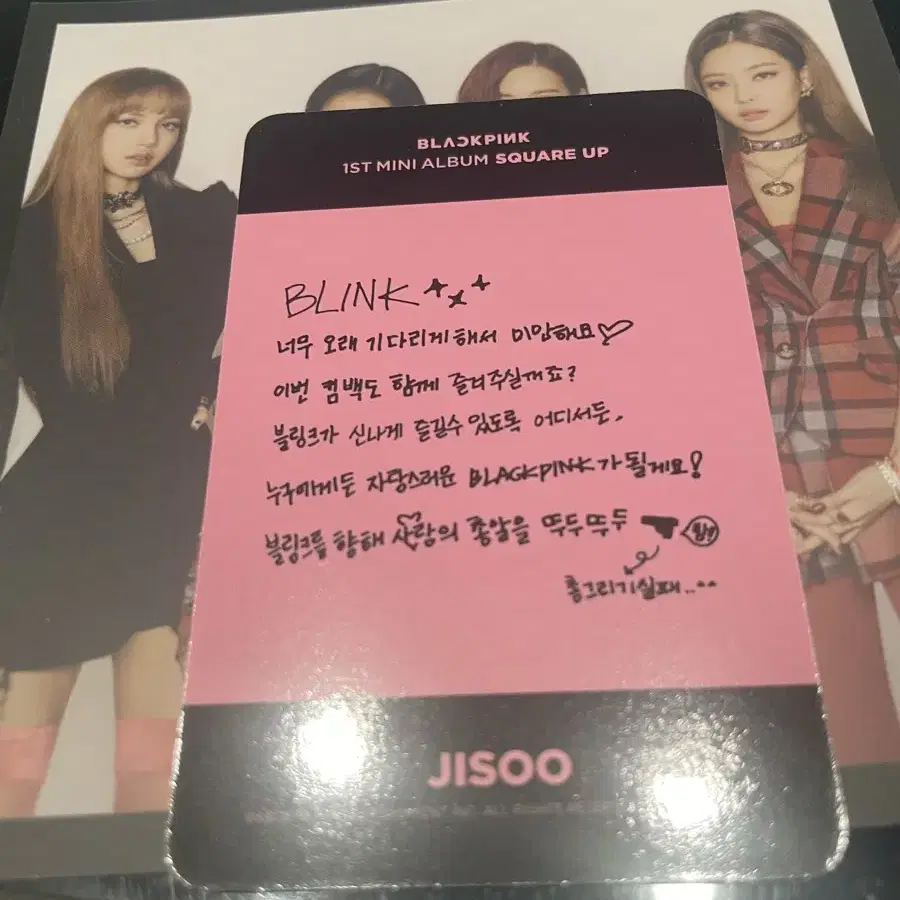 BLACKPINK
1ST MINI ALBUM SQUARE UP
BLINK
너무 오래 기다리게해서 미안해요♡
이번 컴백도 함께 즐겨주실꺼죠?
블링크가 신나게 즐길수 있도록 어디서든,
누구에게든 자랑스러운 BLACKPINK가 될게요!
블링크를 향해 사랑의 총알을 뚜두뚜두
총그리기실패..^^
JISOO
ALL RIGHTS